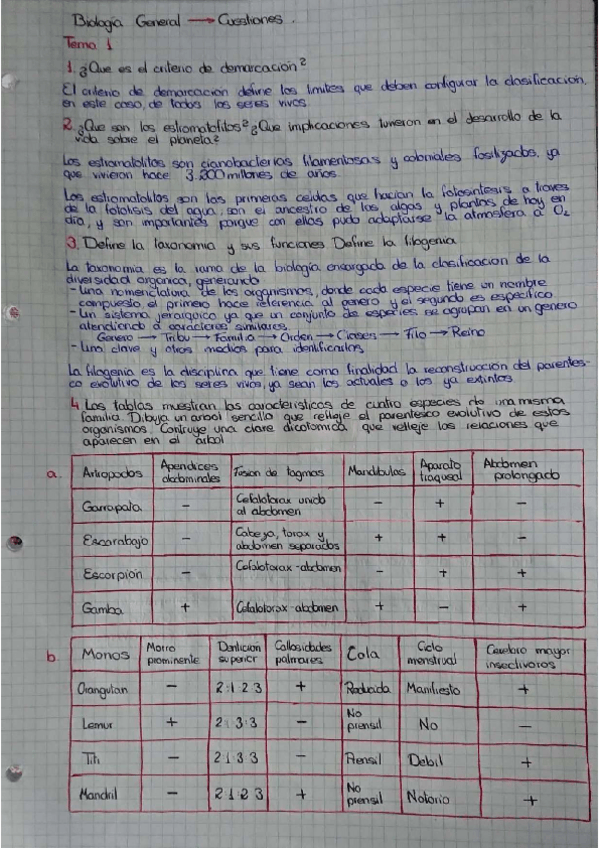 Biología General → Cuestiones.
Tema 1
1. ¿Que es el criterio de demarcación?
El criterio de demarcación define los límites que deben configurar la clasificación,
en este caso, de todos los seres vivos.
2. ¿Que son los estromatolitos? ¿Que implicaciones tuvieron en el desarrollo de la
vida sobre el planeta?
Los estromatolitos son cianobacterias filamentosas y coloniales fosilizados, ya
que vivieron hace 3.200 millones de años.
Los estromatolitos son las primeras celulas que hacían la fotosíntesis a traves
de la fotolisis del agua, son el ancestro de las algas y plantas de hoy en
día, y son importantes porque con ellas pudo adaptarse la atmosfera a O2
3. Define la taxonomia y sus funciones Define la filogenia
La taxonomía es la rama de la biología encargada de la clasificación de la
diversidad organica, generando
- Una nomenclatura de los organismos, donde cada especie tiene un nombre
compuesto, el primero hace referencia al genero y el segundo es especifico
- Un sistema jerarquico ya que un conjunto de especies se agrupan en un genero
atendiendo a caracteres similares.
Genero → Tribu → Familia → Orden → Clases → Filo → Reino
- Una clave y otros medios para identificarlos
La filogenia es la disciplina que tiene como finalidad la reconstrucción del parentes-
co evolutivo de los seres vivos, ya sean los actuales o los ya extintos.
4. Las tablas muestran las características de cuatro especies de una misma
familia. Dibuja un arbol sencillo que refleje el parentesco evolutivo de estos
organismos. Contruye una clave dicotomica que refleje los relaciones que
aparecen en el arbol
a. Artropodos Apendices abdominales Fusion de tagmas Mandíbulas Aparato traqueal Abdomen prolongado
Garrapata - Cefalotorax unido al abdomen - + -
Escarabajo - Cabeza, torax y abdomen separados + + -
Escorpión - Cefalotorax-abdomen - + +
Gamba + Cefalotorax-abdomen + - +
b. Monos Morro prominente Dentición superior Callosidades palmares Cola Ciclo menstrual Cerebro mayor insectivoros
Orangutan - 2·1·2·3 + Reducida Manifiesto +
Lemur + 2 1 3 3 - No prensil No -
Titi - 2 1 3 3 - Prensil Debil +
Mandril - 2 1 2 3 + No prensil Notorio +